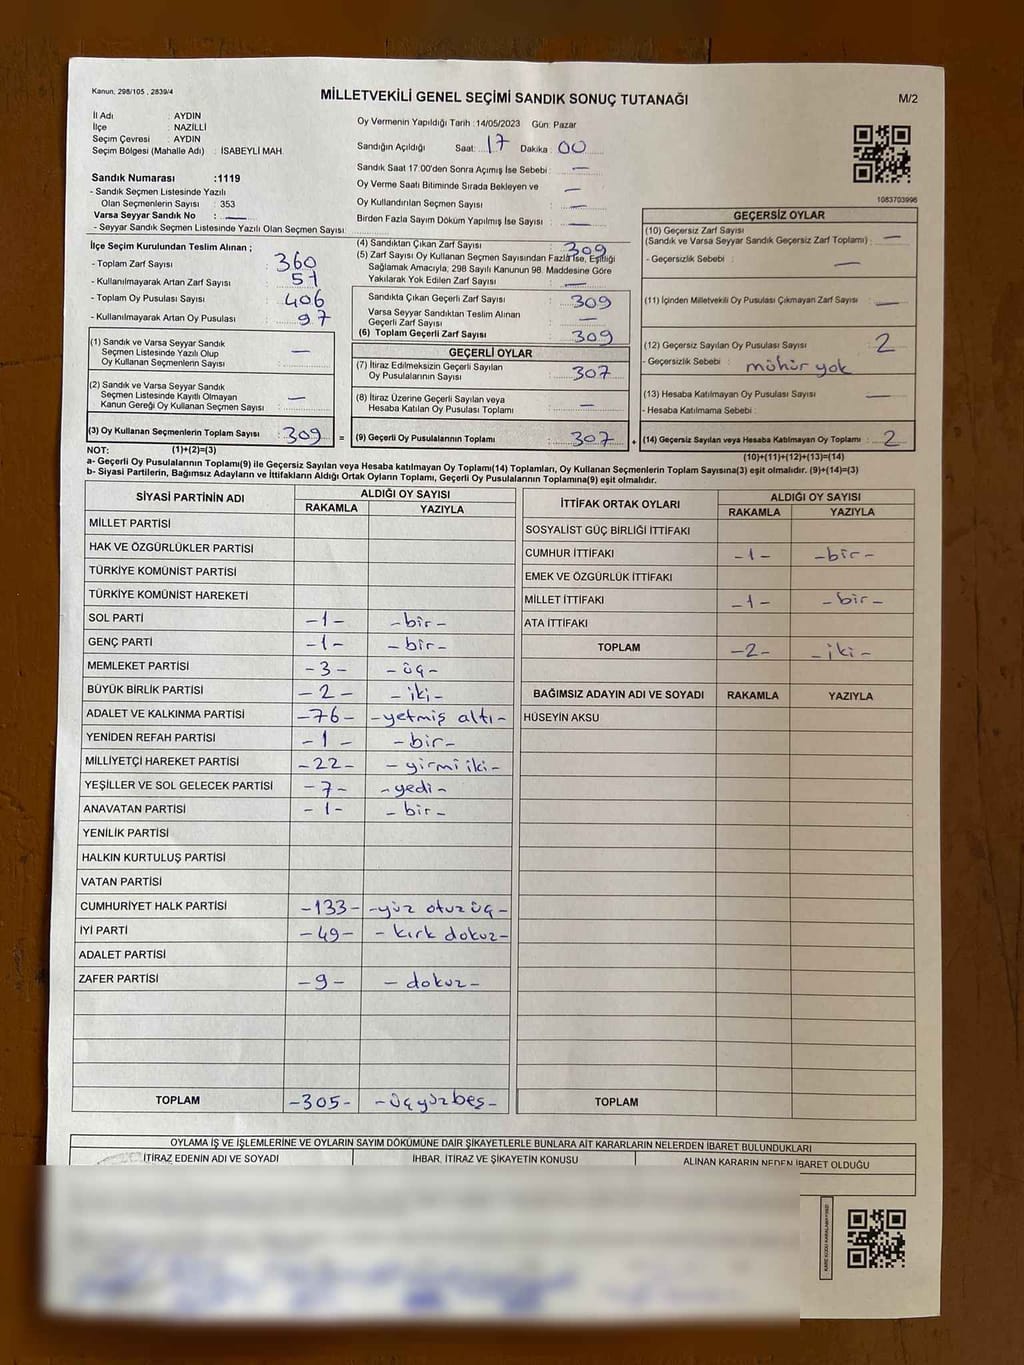 Kanun; 298/105 , 2839/4
MİLLETVEKİLİ GENEL SEÇİMİ SANDIK SONUÇ TUTANAĞI
M/2
İl Adı : AYDIN
İlçe : NAZİLLİ
Seçim Çevresi : AYDIN
Seçim Bölgesi (Mahalle Adı) : İSABEYLİ MAH.
Sandık Numarası :1119
- Sandık Seçmen Listesinde Yazılı
Olan Seçmenlerin Sayısı : 353
Varsa Seyyar Sandık No : —
- Seyyar Sandık Seçmen Listesinde Yazılı Olan Seçmen Sayısı:
Oy Vermenin Yapıldığı Tarih :14/05/2023 Gün: Pazar
Sandığın Açıldığı Saat: 17 Dakika: 00
Sandık Saat 17.00'den Sonra Açımış İse Sebebi : —
Oy Verme Saati Bitiminde Sırada Bekleyen ve —
Oy Kullandırılan Seçmen Sayısı : —
Birden Fazla Sayım Döküm Yapılmış İse Sayısı : —
1083703996
İlçe Seçim Kurulundan Teslim Alınan ;
- Toplam Zarf Sayısı : 360
- Kullanılmayarak Artan Zarf Sayısı : 51
- Toplam Oy Pusulası Sayısı : 406
- Kullanılmayarak Artan Oy Pusulası : 97
(1) Sandık ve Varsa Seyyar Sandık
Seçmen Listesinde Yazılı Olup
Oy Kullanan Seçmenlerin Sayısı : —
(2) Sandık ve Varsa Seyyar Sandık
Seçmen Listesinde Kayıtlı Olmayan
Kanun Gereği Oy Kullanan Seçmen Sayısı : —
(3) Oy Kullanan Seçmenlerin Toplam Sayısı : 309 =
(4) Sandıktan Çıkan Zarf Sayısı : 309
(5) Zarf Sayısı Oy Kullanan Seçmen Sayısından Fazla İse, Eşitliği
Sağlamak Amacıyla, 298 Sayılı Kanunun 98. Maddesine Göre
Yakılarak Yok Edilen Zarf Sayısı : —
Sandıkta Çıkan Geçerli Zarf Sayısı : 309
Varsa Seyyar Sandıktan Teslim Alınan
Geçerli Zarf Sayısı : —
(6) Toplam Geçerli Zarf Sayısı : 309
GEÇERLİ OYLAR
(7) İtiraz Edilmeksizin Geçerli Sayılan
Oy Pusulalarının Sayısı : 307
(8) İtiraz Üzerine Geçerli Sayılan veya
Hesaba Katılan Oy Pusulası Toplamı : —
(9) Geçerli Oy Pusulalarının Toplamı : 307 +
GEÇERSİZ OYLAR
(10) Geçersiz Zarf Sayısı
(Sandık ve Varsa Seyyar Sandık Geçersiz Zarf Toplamı) : —
- Geçersizlik Sebebi : —
(11) İçinden Milletvekili Oy Pusulası Çıkmayan Zarf Sayısı : —
(12) Geçersiz Sayılan Oy Pusulası Sayısı : 2
- Geçersizlik Sebebi : mühür yok
(13) Hesaba Katılmayan Oy Pusulası Sayısı : —
- Hesaba Katılmama Sebebi :
(14) Geçersiz Sayılan veya Hesaba Katılmayan Oy Toplamı : 2
NOT: (1)+(2)=(3)
(10)+(11)+(12)+(13)=(14)
a- Geçerli Oy Pusulalarının Toplamı(9) ile Geçersiz Sayılan veya Hesaba katılmayan Oy Toplamı(14) Toplamları, Oy Kullanan Seçmenlerin Toplam Sayısına(3) eşit olmalıdır. (9)+(14)=(3)
b- Siyasi Partilerin, Bağımsız Adayların ve İttifakların Aldığı Ortak Oyların Toplamı, Geçerli Oy Pusulalarının Toplamına(9) eşit olmalıdır.
SİYASİ PARTİNİN ADI ALDIĞI OY SAYISI
RAKAMLA YAZIYLA
MİLLET PARTİSİ
HAK VE ÖZGÜRLÜKLER PARTİSİ
TÜRKİYE KOMÜNİST PARTİSİ
TÜRKİYE KOMÜNİST HAREKETİ
SOL PARTİ -1- -bir-
GENÇ PARTİ -1- -bir-
MEMLEKET PARTİSİ -3- -üç-
BÜYÜK BİRLİK PARTİSİ -2- -iki-
ADALET VE KALKINMA PARTİSİ -76- -yetmiş altı-
YENİDEN REFAH PARTİSİ -1- -bir-
MİLLİYETÇİ HAREKET PARTİSİ -22- -yirmi iki-
YEŞİLLER VE SOL GELECEK PARTİSİ -7- -yedi-
ANAVATAN PARTİSİ -1- -bir-
YENİLİK PARTİSİ
HALKIN KURTULUŞ PARTİSİ
VATAN PARTİSİ
CUMHURİYET HALK PARTİSİ -133- -yüz otuz üç-
İYİ PARTİ -49- -kırk dokuz-
ADALET PARTİSİ
ZAFER PARTİSİ -9- -dokuz-
TOPLAM -305- -üçyüzbeş-
İTTİFAK ORTAK OYLARI ALDIĞI OY SAYISI
RAKAMLA YAZIYLA
SOSYALİST GÜÇ BİRLİĞİ İTTİFAKI
CUMHUR İTTİFAKI -1- -bir-
EMEK VE ÖZGÜRLÜK İTTİFAKI
MİLLET İTTİFAKI -1- -bir-
ATA İTTİFAKI
TOPLAM -2- -iki-
BAĞIMSIZ ADAYIN ADI VE SOYADI RAKAMLA YAZIYLA
HÜSEYİN AKSU
TOPLAM
OYLAMA İŞ VE İŞLEMLERİNE VE OYLARIN SAYIM DÖKÜMÜNE DAİR ŞİKAYETLERLE BUNLARA AİT KARARLARIN NELERDEN İBARET BULUNDUKLARI
İTİRAZ EDENİN ADI VE SOYADI İHBAR, İTİRAZ VE ŞİKAYETİN KONUSU ALINAN KARARIN NEDEN İBARET OLDUĞU